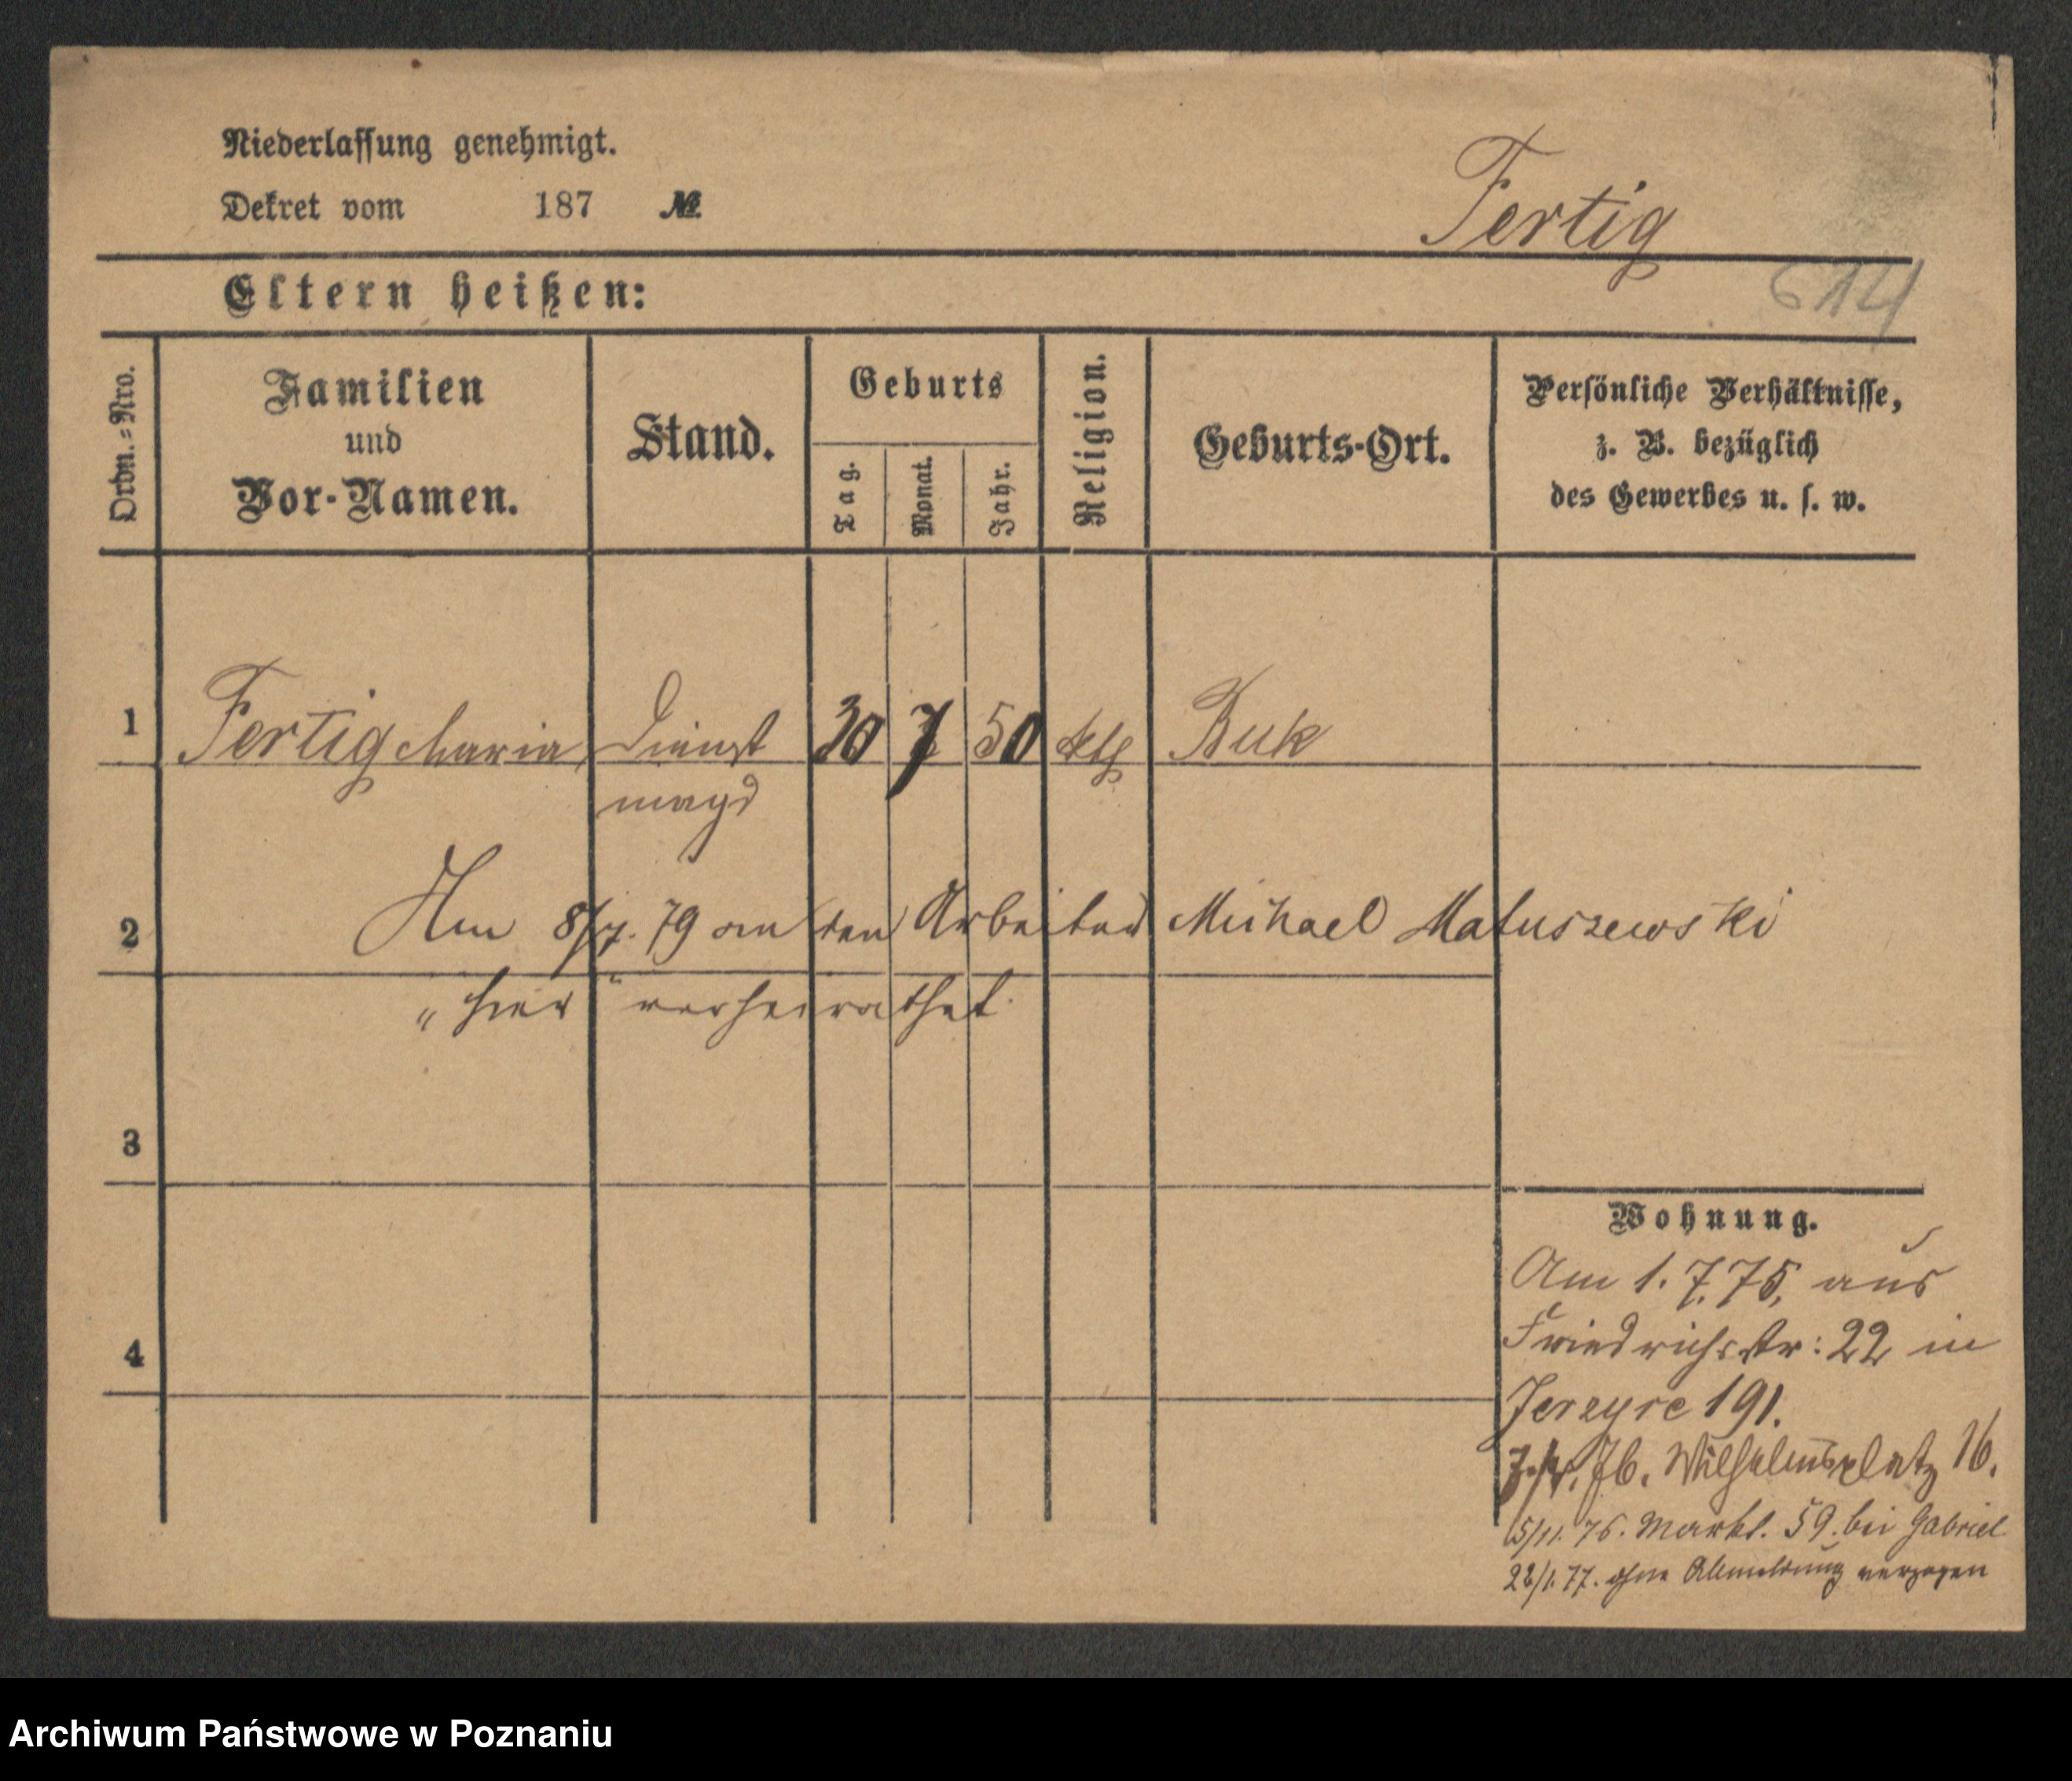 Niederlassung genehmigt.
Dekret vom 187 №
Fertig
Eltern heißen:
614
Ordn.-Nro.
Familien
und
Vor-Namen.
Stand.
Geburts
Tag. Monat. Jahr.
Religion.
Geburts-Ort.
Persönliche Verhältnisse,
z. B. bezüglich
des Gewerbes u. s. w.
1 Fertig Maria Dienst 30 7 50 kth Buk
magd
2 Am 8/7. 79 an den Arbeiter Michael Matuszewski
"hier" verheirathet.
3
4
Wohnung.
Am 1. 7. 75, aus
Friedrichstr: 22 in
Jerzyce 191.
76. Wilhelmsplatz 16.
15/11. 76. Markt. 59. bei Gabriel
22/1. 77. ohne Abmeldung verzogen
Archiwum Państwowe w Poznaniu